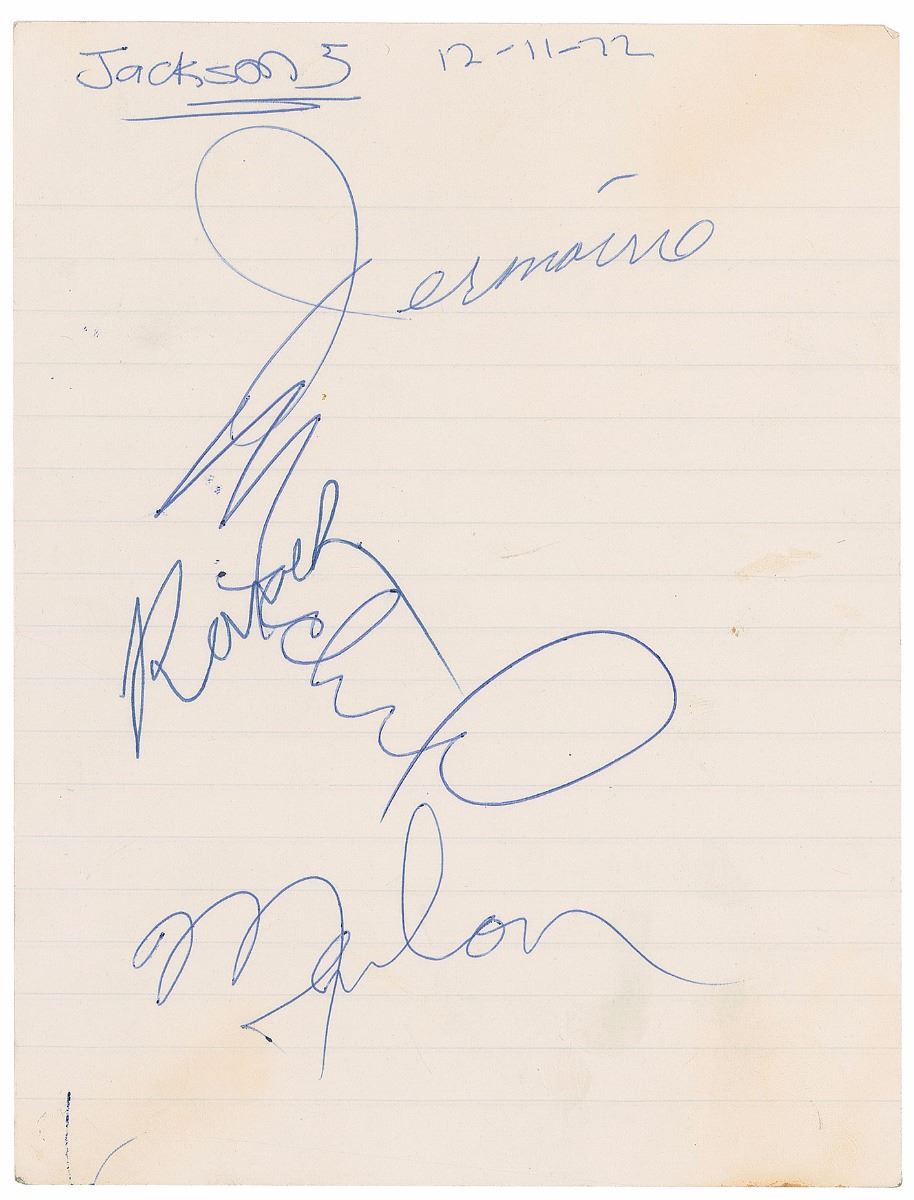 Jackson 5 12-11-72
Jermaine
Michael
Marlon